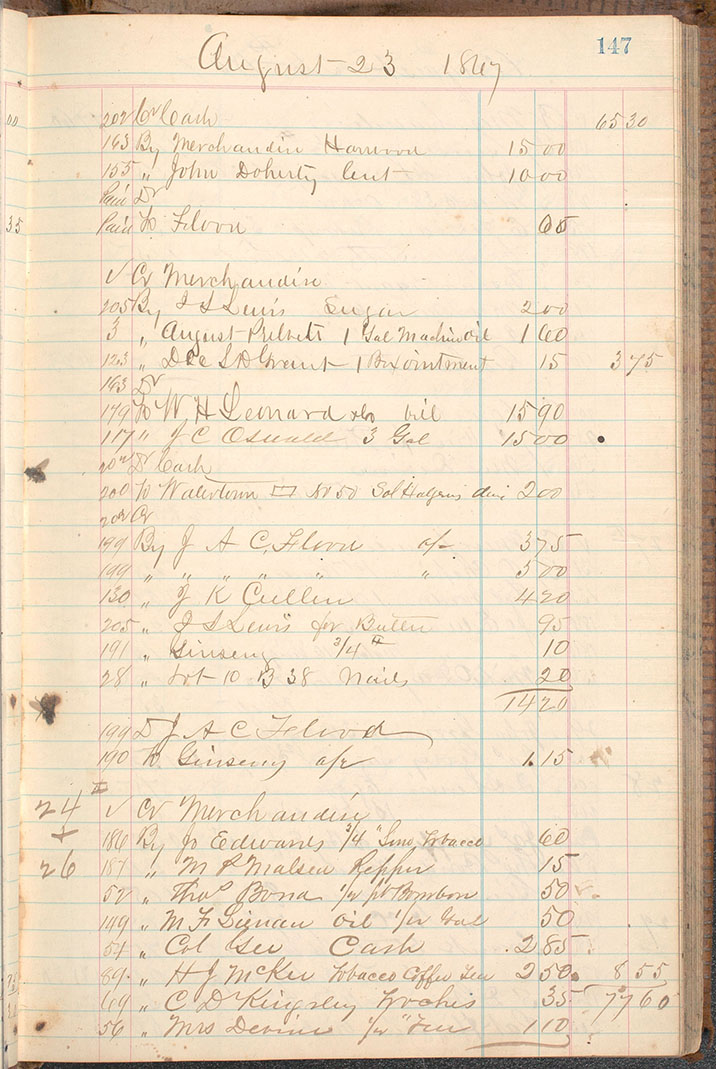 147
August 23 1867
202 Cr Cash 65 30
163 By Merchandise Harwood 15 00
155 " John Doherty Cent 10 00
Paid Dr
Paid To Flood 65
√ Cr Merchandise
205 By J S Lewis Sugar 2 00
3 " August Pribett 1 Gal Machine oil 1 60
123 " D S D Grant 1 Bx ointment 15 3 75
163 Dr
179 To W. H Leonard &Co bill 15 90
117 " J C Oswald 3 Gal 15 00
202 Dr Cash
200 To Watertown No 50 Sol 2 00
202 Cr
199 By J A C. Flood a/c 3 75
199 " " " " " " 5 00
130 " J K Cullen 4 20
205 " J S Lewis for Butter 95
191 " Ginseng 3/4 # 10
28 " Lot 10 B 38 Nails 20
14 20
199 Dr J A C Flood
190 To Ginseng a/c 1.15
24 √ Cr Merchandise
+ 186 By Jo Edwards 3/4 " Tobacco 60
26 187 " M P Pepper 15
52 " Thos Bond 1/2 pt Bourbon 50
149 " M F oil 1/2 Gal 50
54 " Col Gee Cash 2 85
89 " H J McKee Tobacco Coffee Tea 2 50 8 55
69 " C D Kingsley 35 77 60
56 " Mrs Devine 1/2 " Tea 1 10
00
35